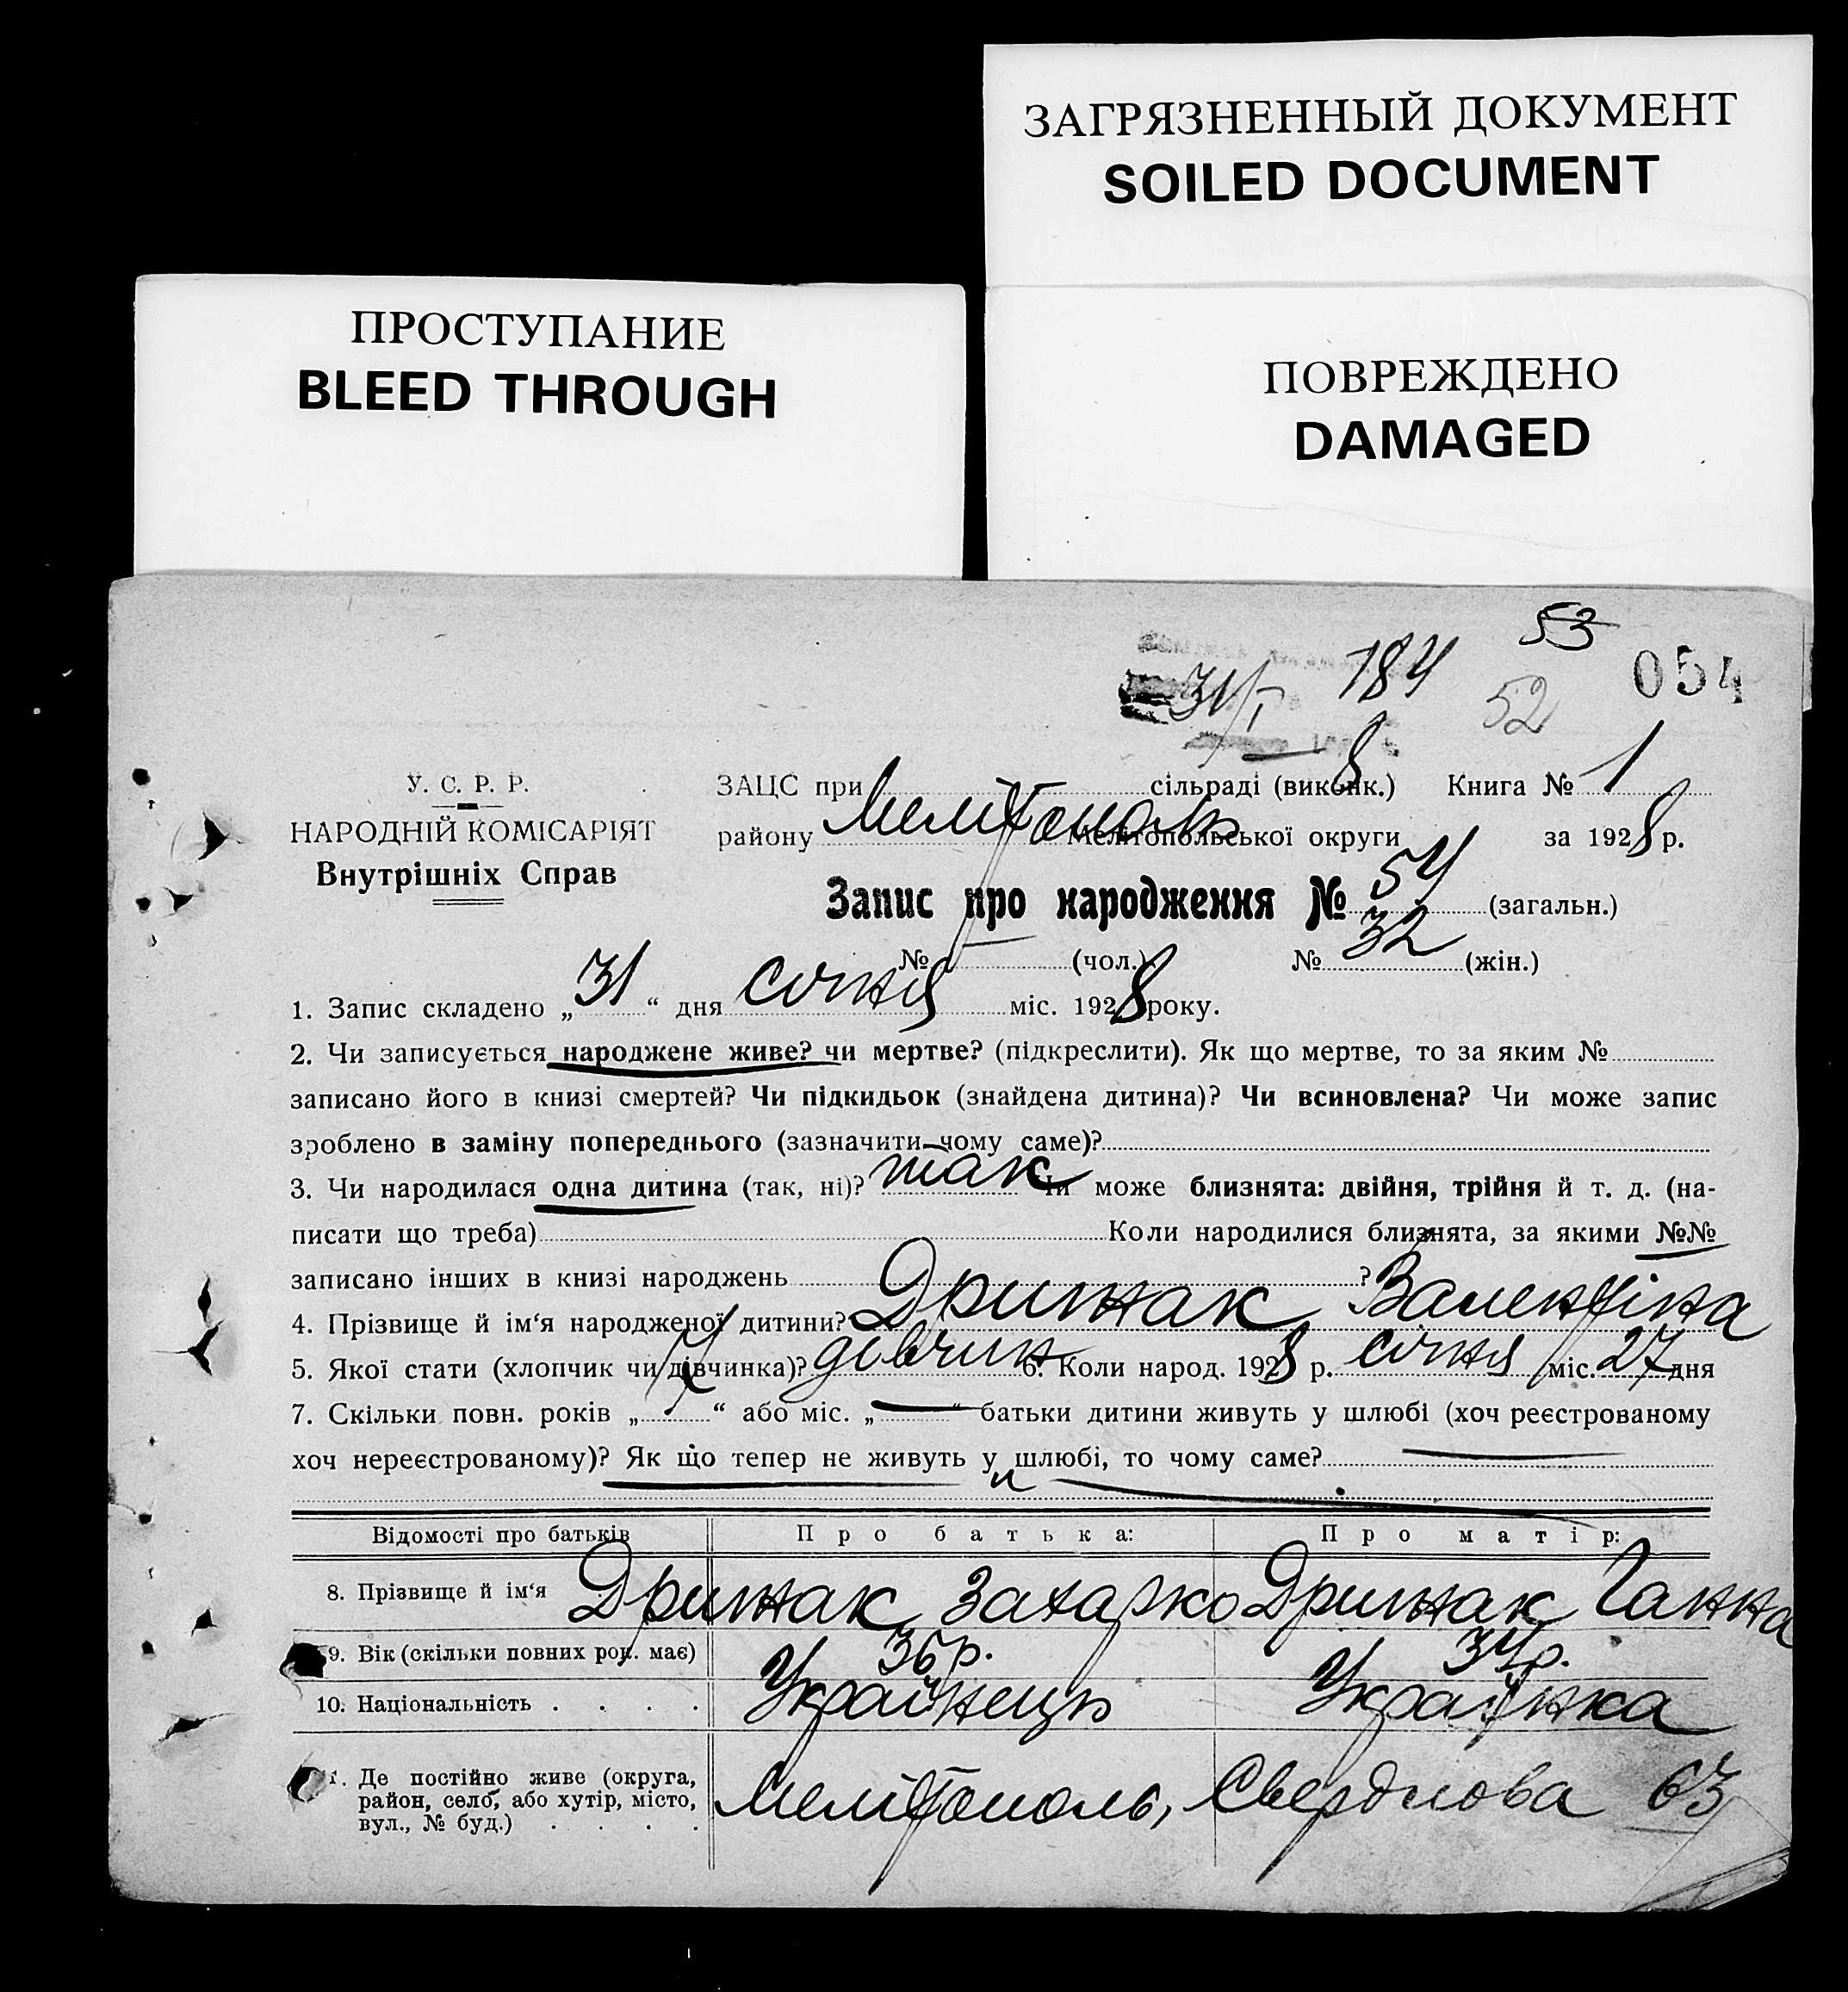 ЗАГРЯЗНЕННЫЙ ДОКУМЕНТ
SOILED DOCUMENT
ПРОСТУПАНИЕ
BLEED THROUGH
ПОВРЕЖДЕНО
DAMAGED
53
31/I 184 52 054
8
У. С. Р. Р.
НАРОДНІЙ КОМІСАРІЯТ
Внутрішніх Справ
ЗАЦС при сільраді (виконк.) Книга № 1
району Мелітополь Мелітопольської округи за 1928 р.
Запис про народження № 54 (загальн.)
№ — (чол.) № 32 (жін.)
1. Запис складено „31“ дня січня міс. 1928 року.
2. Чи записується народжене живе? чи мертве? (підкреслити). Як що мертве, то за яким №
записано його в книзі смертей? Чи підкидьок (знайдена дитина)? Чи всиновлена? Чи може запис
зроблено в заміну попереднього (зазначити чому саме)?
3. Чи народилася одна дитина (так, ні)? так Чи може близнята: двійня, трійня й т. д. (на-
писати що треба) Коли народилися близнята, за якими №№
записано інших в книзі народжень ?
4. Прізвище й ім‘я народженої дитини? Дрижак Валентіна
5. Якої стати (хлопчик чи дівчинка)? дівчин 6. Коли народ. 1928 р. січня міс. 27 дня
7. Скільки повн. років „7“ або міс. „—“ батьки дитини живуть у шлюбі (хоч реєстрованому
хоч нереєстрованому)? Як що тепер не живуть у шлюбі, то чому саме? —
Відомості про батьків Про батька: Про матір:
8. Прізвище й ім‘я Дрижак Захарко Дрижак Ганна
9. Вік (скільки повних рок. має) 36 р. 34 р.
10. Національність . . . . Українець Українка
11. Де постійно живе (округа,
район, село, або хутір, місто, Мелітополь, Свердлова 63
вул., № буд.) . . . .